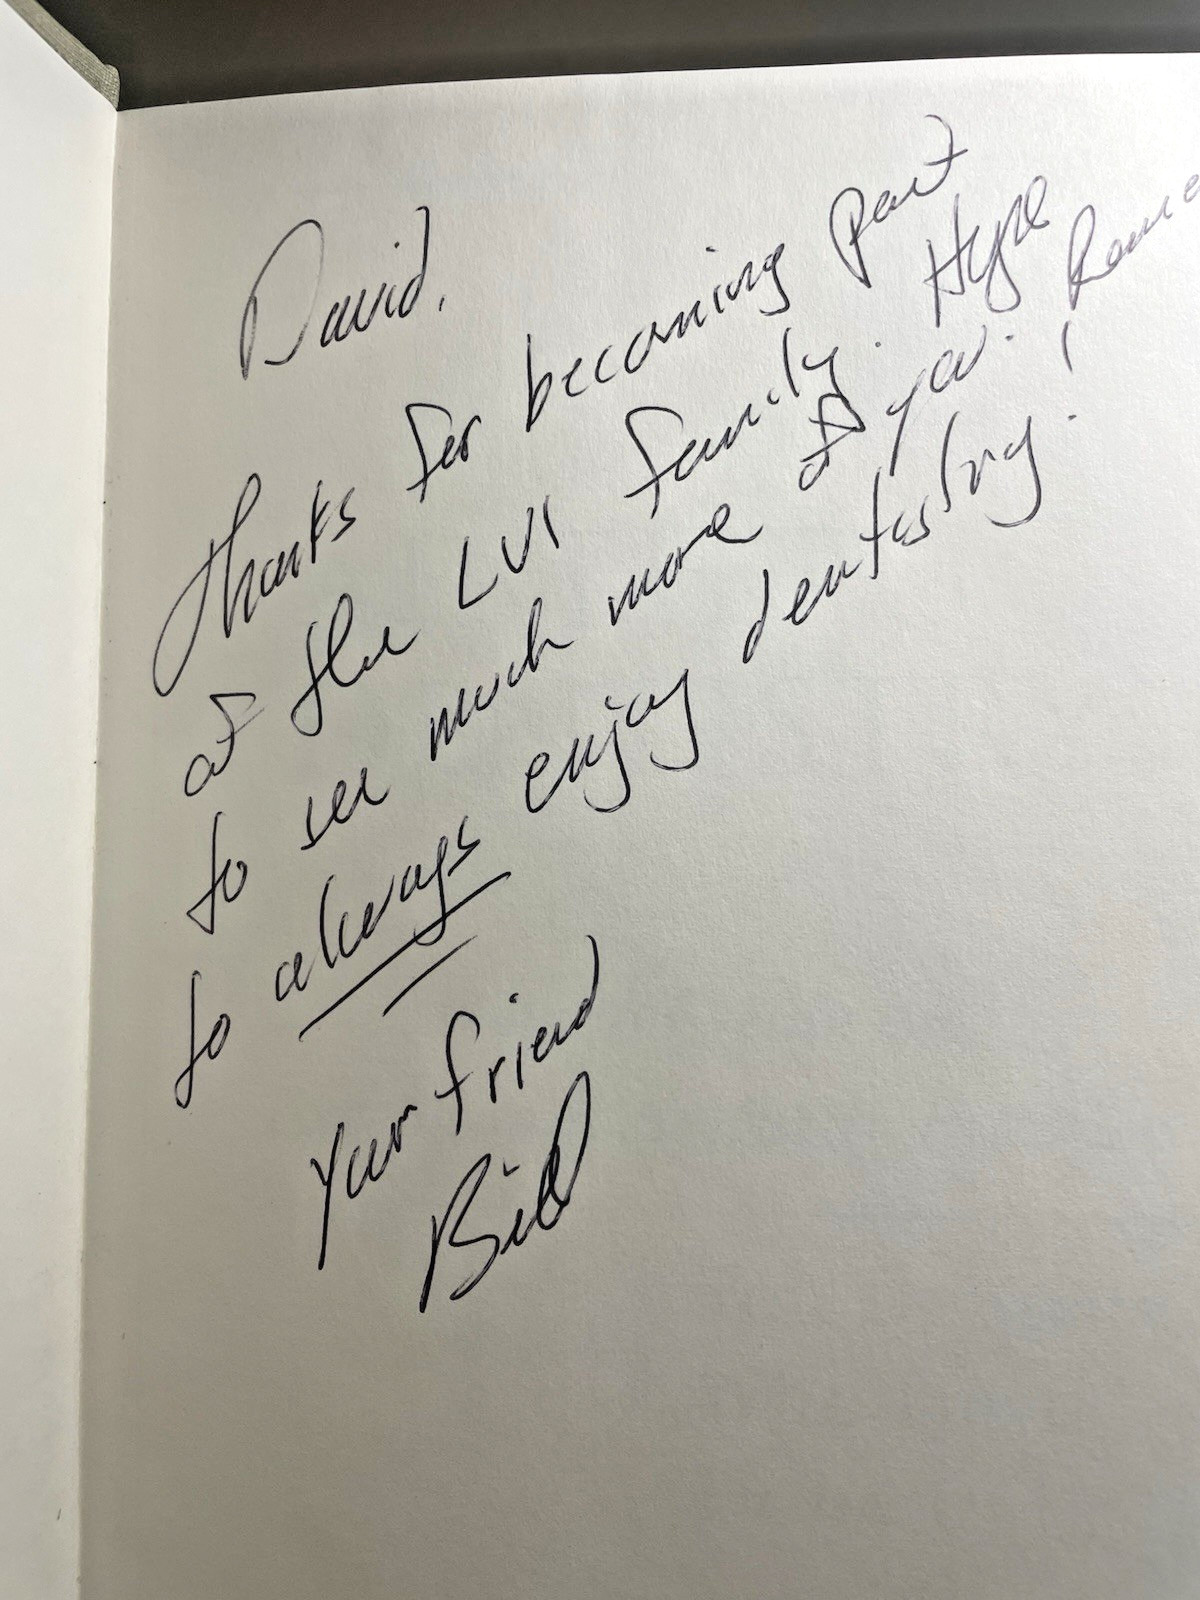 David,
Thanks for becoming part
of the LVI family. Hope
to see much more of you. Reme
to always enjoy dentistry!
Your friend
Bill